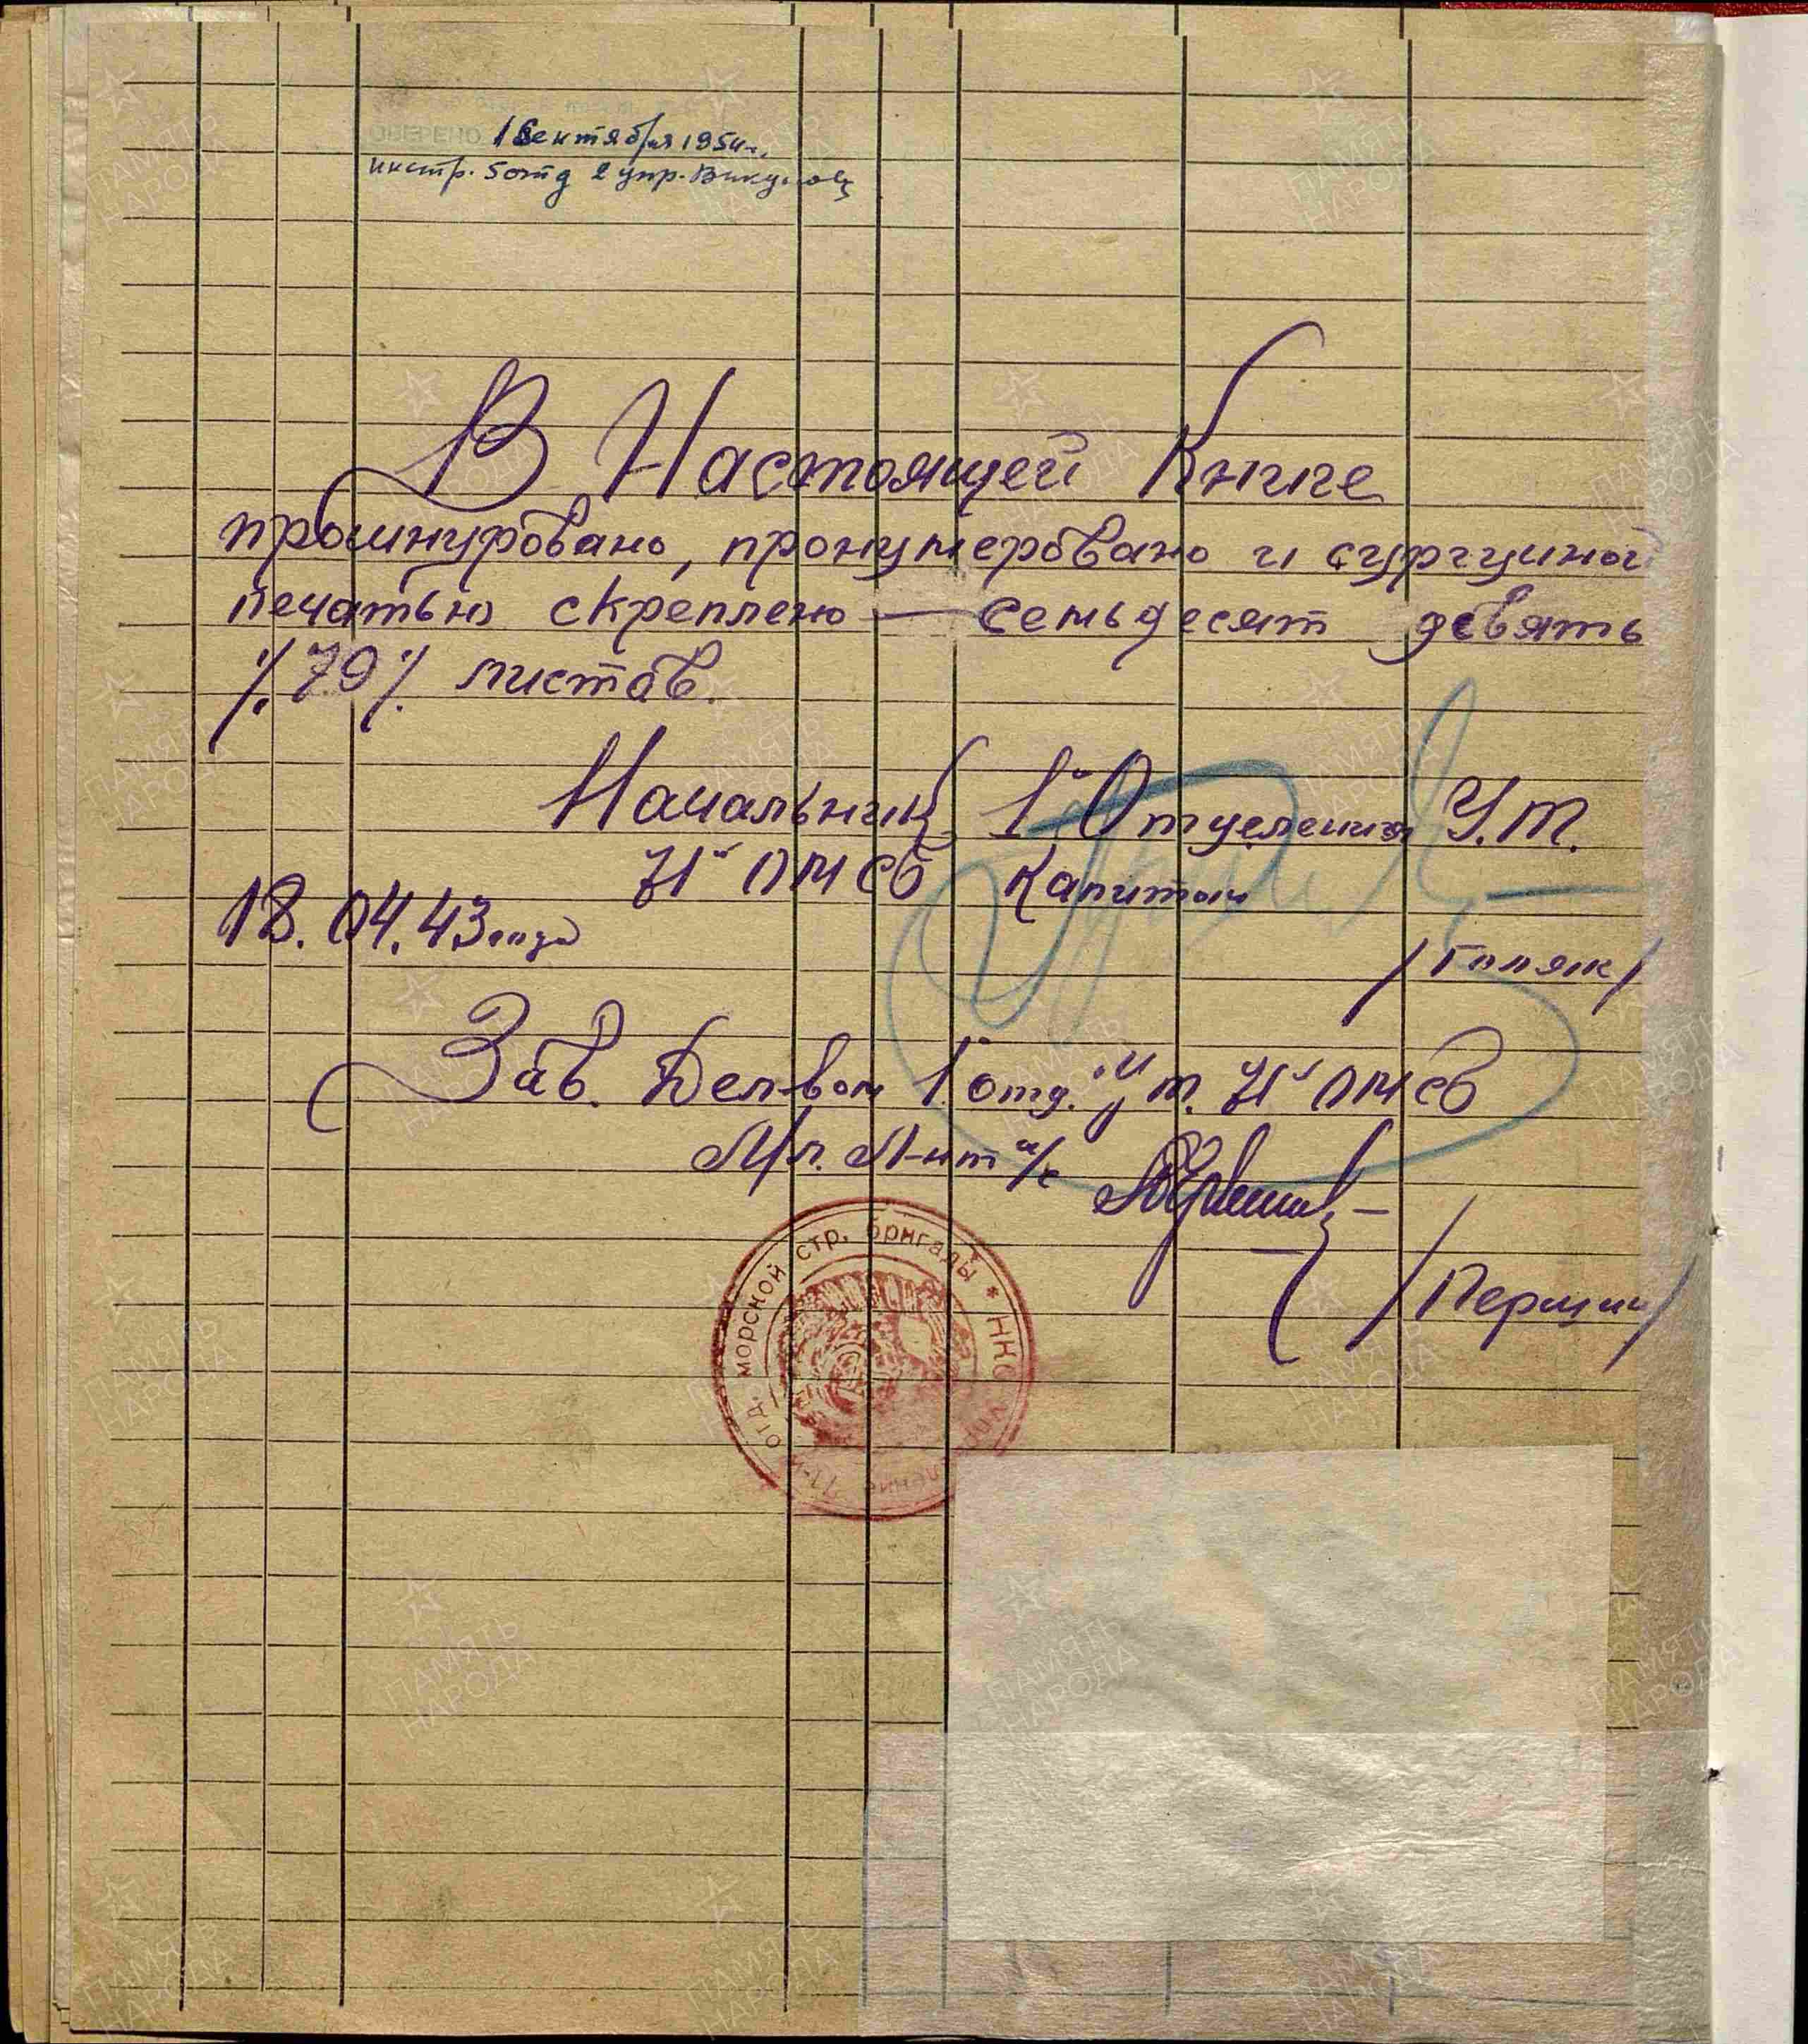 ОВЕРЕНО 1 Сентября 1954 г.
инстр. 5 отд 2 упр.
В Настоящей Книге
прошнуровано, пронумеровано и сургучной
печатью скреплено — семьдесят девять
/.79./ листов.
Начальник 1го Отделения У.М.
71й ОМСБ Капитан
18.04.43 года
/Голяк/
Зав. Дел-вом 1 отд. У.М. 71й ОМСБ
Мл. Л-нт а/с
/Першин/
71-й отд. морской стр. бригады * НКО
ПАМЯТЬ
НАРОДА